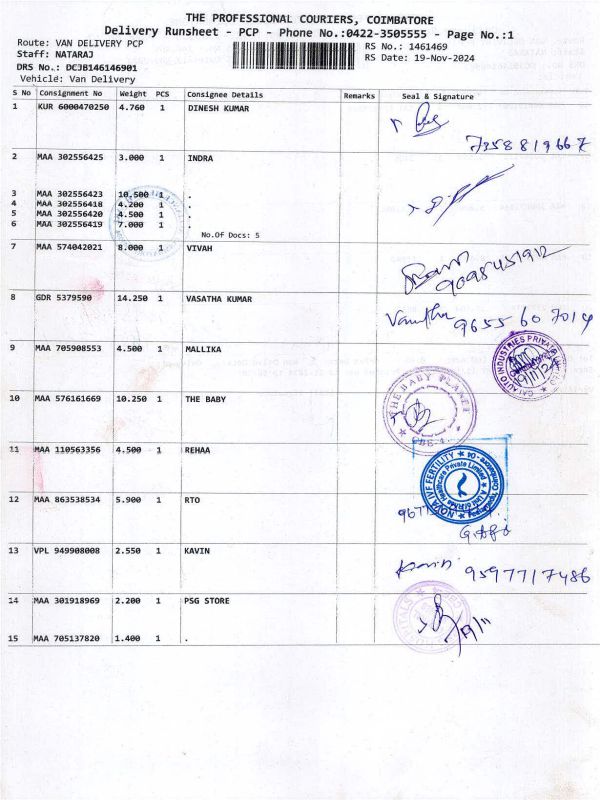 THE PROFESSIONAL COURIERS, COIMBATORE
Delivery Runsheet - PCP - Phone No.:0422-3505555 - Page No.:1
Route: VAN DELIVERY PCP
RS No.: 1461469
Staff: NATARAJ
RS Date: 19-Nov-2024
DRS No.: DCJB146146901
Vehicle: Van Delivery
S No Consignment No Weight PCS Consignee Details Remarks Seal & Signature
1 KUR 6000470250 4.760 1 DINESH KUMAR
7358819667
2 MAA 302556425 3.000 1 INDRA
3 MAA 302556423 10.500 1 .
4 MAA 302556418 4.200 1 .
5 MAA 302556420 4.500 1 .
6 MAA 302556419 7.000 1 .
No.Of Docs: 5
7 MAA 574042021 8.000 1 VIVAH
9098451912
8 GDR 5379590 14.250 1 VASATHA KUMAR
9655 60 7014
9 MAA 705908553 4.500 1 MALLIKA
10 MAA 576161669 10.250 1 THE BABY
THE BABY PLANET
CBE
11 MAA 110563356 4.500 1 REHAA
NOVA IVF FERTILITY
12 MAA 863538534 5.900 1 RTO
13 VPL 949908008 2.550 1 KAVIN
9597717486
14 MAA 301918969 2.200 1 PSG STORE
15 MAA 705137820 1.400 1 .